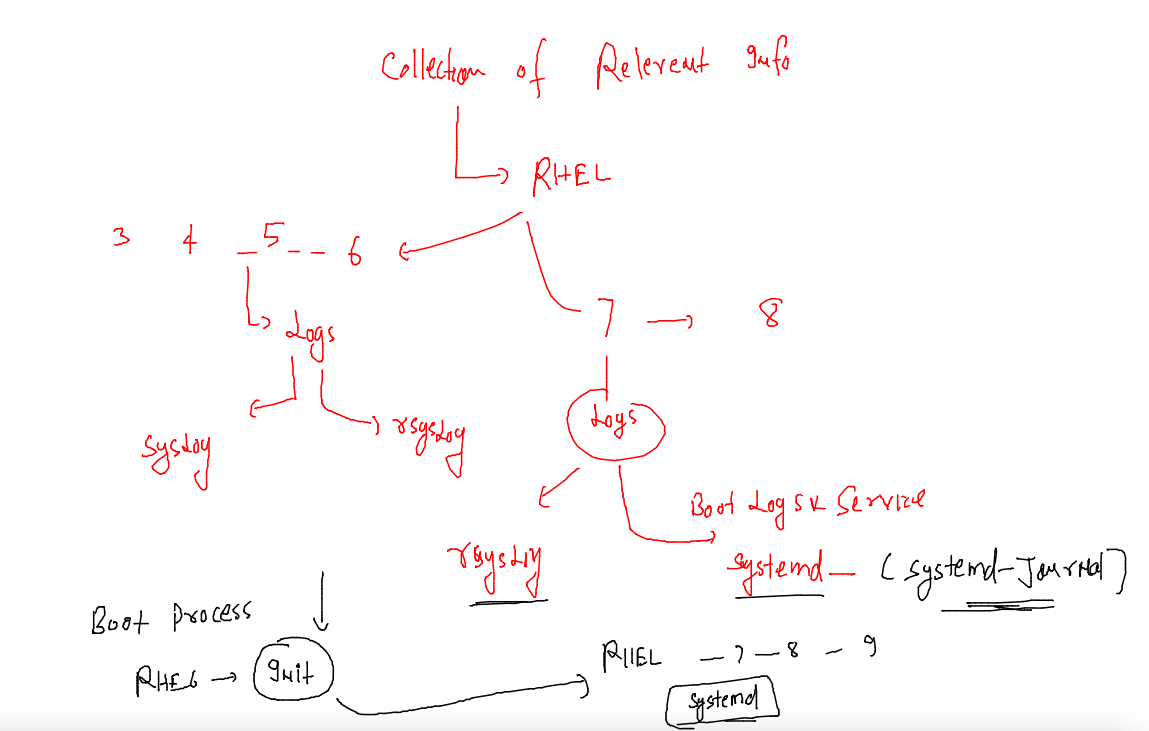 Collection of Relevent Info
RHEL
3 4 5 6
7 8
Logs
Logs
syslog
rsyslog
Boot Logs & Service
rsyslog
systemd (systemd-Journal)
Boot Process
RHE6 Init
RHEL 7 8 9
systemd